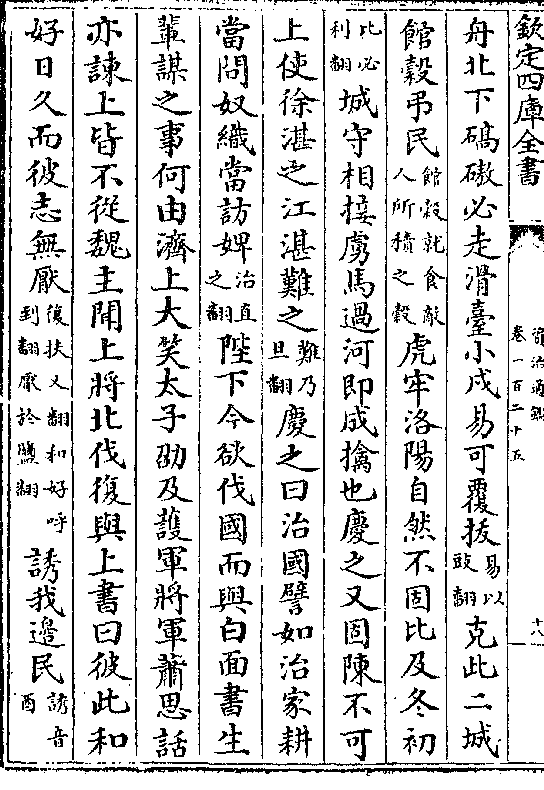 欽定四庫全書
資治通鑑
卷一百二十五
十八
舟北下碻磝必走滑臺小戍易可覆拔易以豉翻克此二城
館穀弔民館穀就食敵人所積之穀虎牢洛陽自然不固比及冬初
比必利翻城守相接虜馬過河即成擒也慶之又固陳不可
上使徐湛之江湛難之難乃旦翻慶之曰治國譬如治家耕
當問奴織當訪婢治直之翻陛下今欲伐國而與白面書生
輩謀之事何由濟上大笑太子劭及護軍將軍蕭思話
亦諫上皆不從魏主聞上將北伐復與上書曰彼此和
好日久而彼志無厭復扶又翻和好呼到翻厭於鹽翻誘我邉民誘音酉